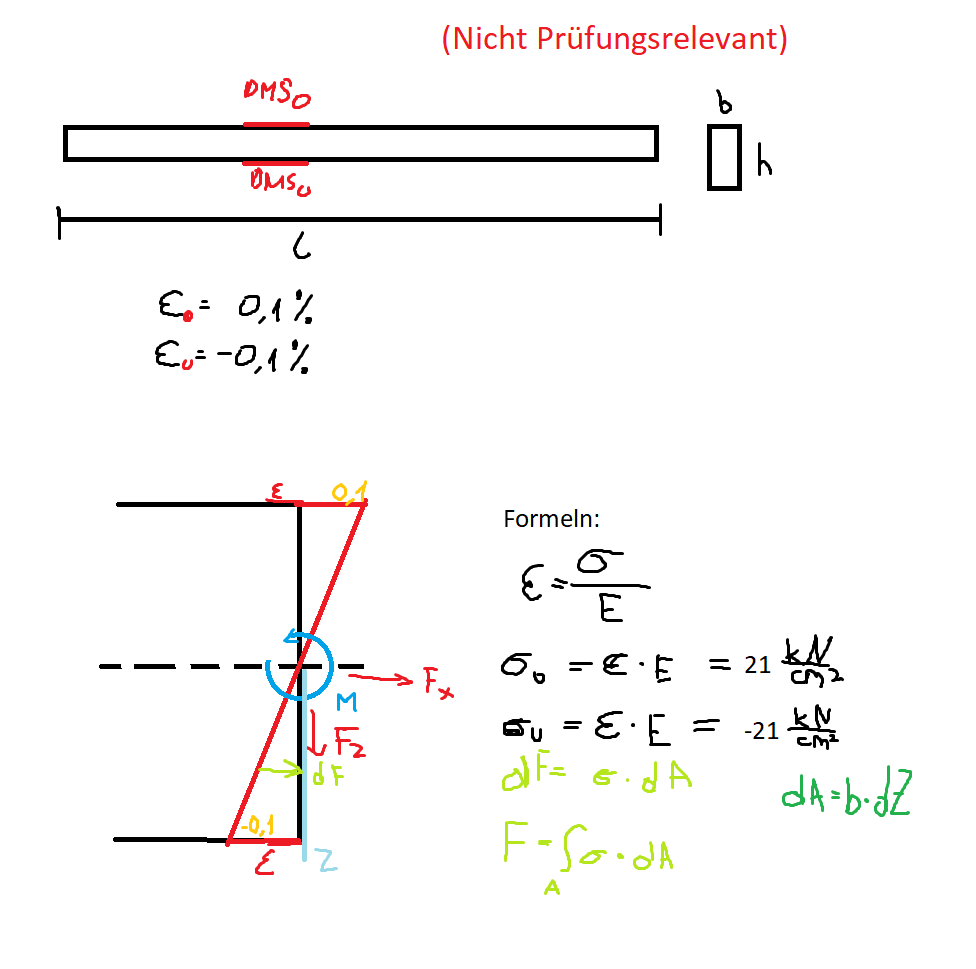 (Nicht Prüfungsrelevant)
DMSo
b
h
DMSu
L
εo = 0,1 %
εu = -0,1 %
ε 0,1
M
Fx
Fz
dF
-0,1
ε
Z
Formeln:
ε = σ / E
σo = ε · E = 21 kN/cm²
σu = ε · E = -21 kN/cm²
dF = σ · dA
dA = b · dZ
F = ∫A σ · dA